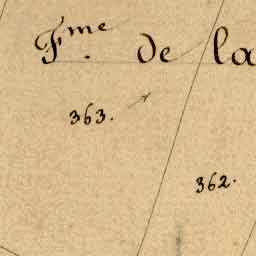 Fme de la
363.
362.